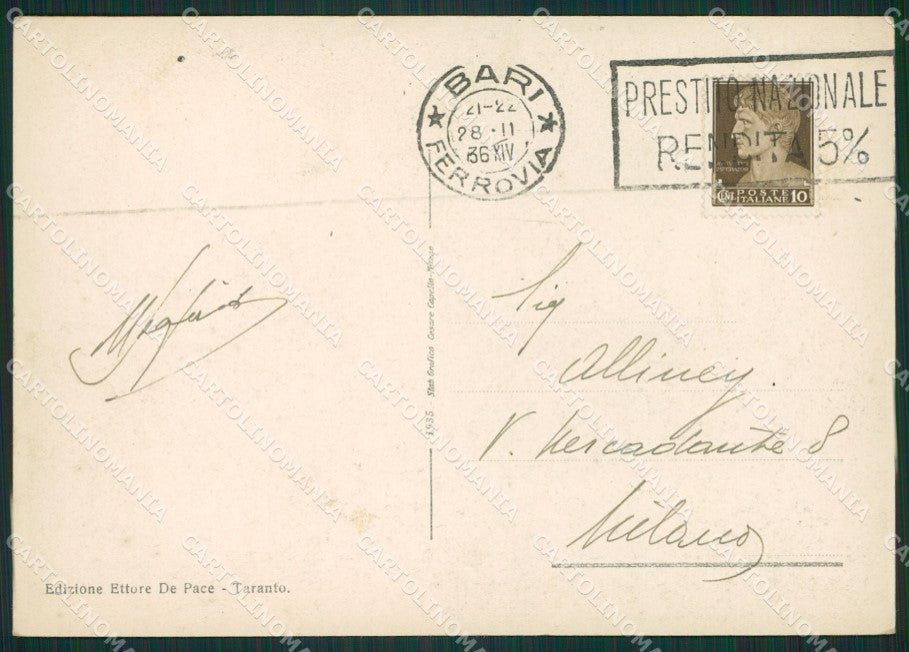 BARI
21-22
28·II
36 XIV
FERROVIA
PRESTITO NAZIONALE
RENDITA 5%
POSTE
CENT. ITALIANE 10
Sig
Alliney
V. Mercadante 8
Milano
1935 - Stab Grafico Cesare Capello - Milano
Edizione Ettore De Pace - Taranto.
CARTOLINOMANIA